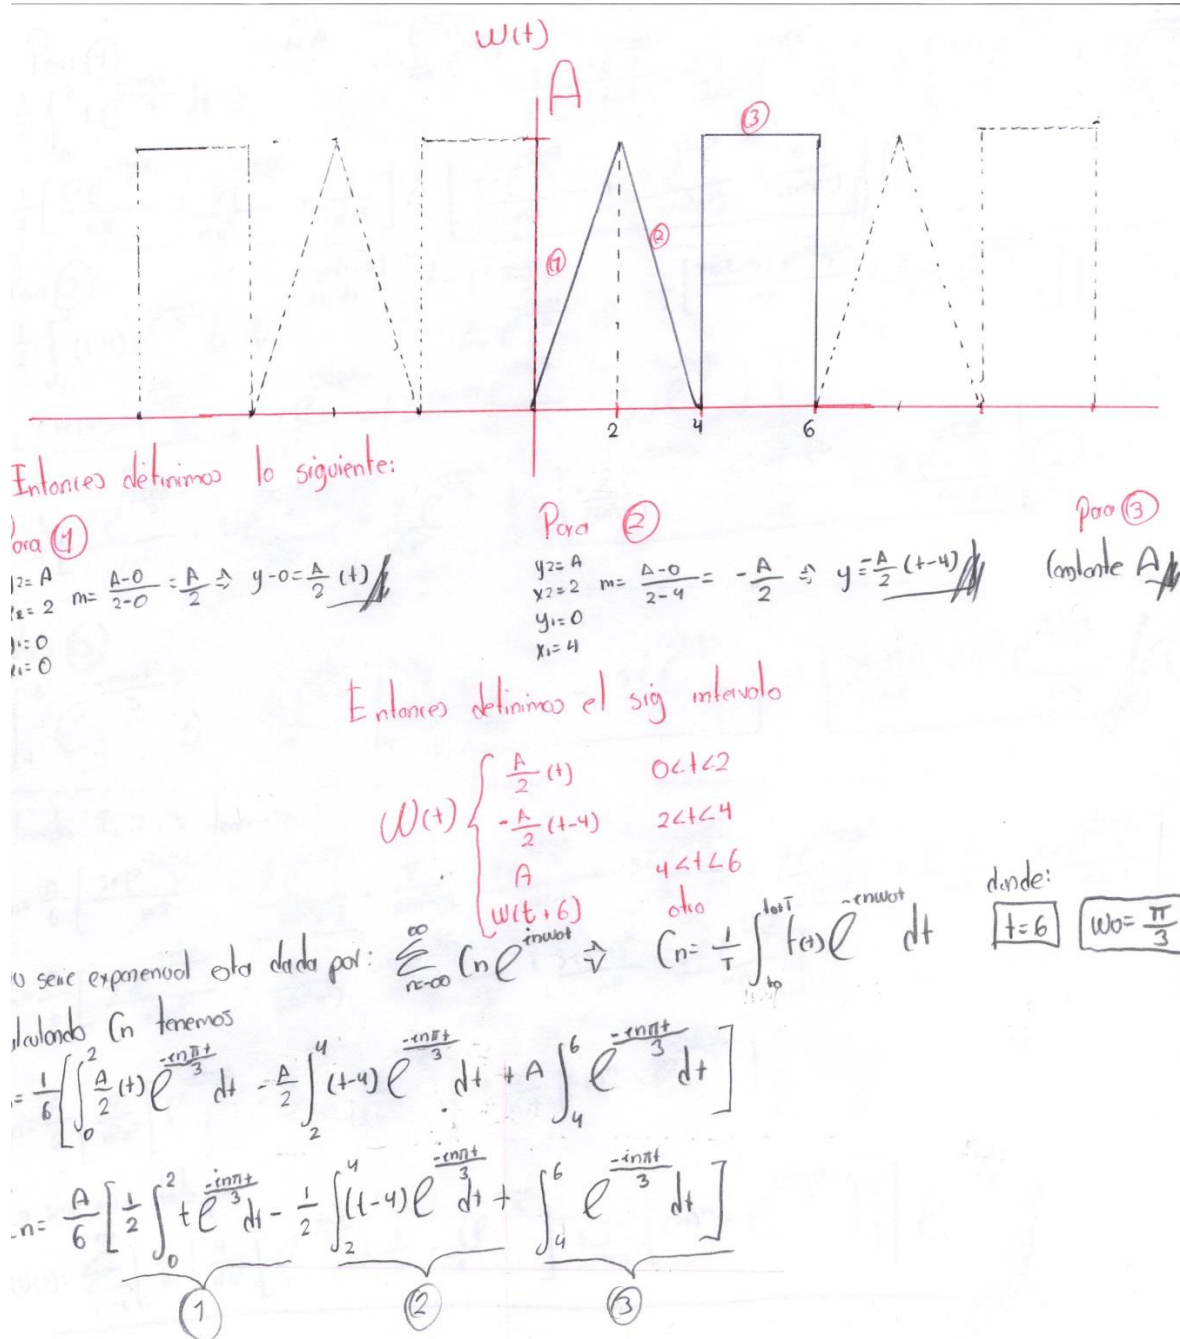 w(t)
A
③
① ②
2 4 6
Entonces definimos lo siguiente:
Para ① Para ② Para ③
y₂= A
x₂= 2 m= \frac{A-0}{2-0} = \frac{A}{2} ⇒ y-0= \frac{A}{2} (t)
y₁=0
x₁=0
y₂= A
x₂=2 m= \frac{A-0}{2-4} = -\frac{A}{2} ⇒ y= -\frac{A}{2} (t-4)
y₁=0
x₁=4
Constante A
Entonces definimos el sig intervalo
W(t) { \frac{A}{2} (t) 0<t<2
-\frac{A}{2} (t-4) 2<t<4
A 4<t<6
w(t+6) otro
serie exponencial esta dada por: \sum_{n=-∞}^{∞} Cn e^{inwot} ⇒ Cn= \frac{1}{T} \int_{to}^{to+T} f(t) e^{-inwot} dt
donde:
t=6 wo= \frac{π}{3}
lculando Cn tenemos
= \frac{1}{6} [ \int_0^2 \frac{A}{2} (t) e^{\frac{-inπt}{3}} dt - \frac{A}{2} \int_2^4 (t-4) e^{\frac{-inπt}{3}} dt + A \int_4^6 e^{\frac{-inπt}{3}} dt ]
n= \frac{A}{6} [ \frac{1}{2} \int_0^2 t e^{\frac{-inπt}{3}} dt - \frac{1}{2} \int_2^4 (t-4) e^{\frac{-inπt}{3}} dt + \int_4^6 e^{\frac{-inπt}{3}} dt ]
① ② ③